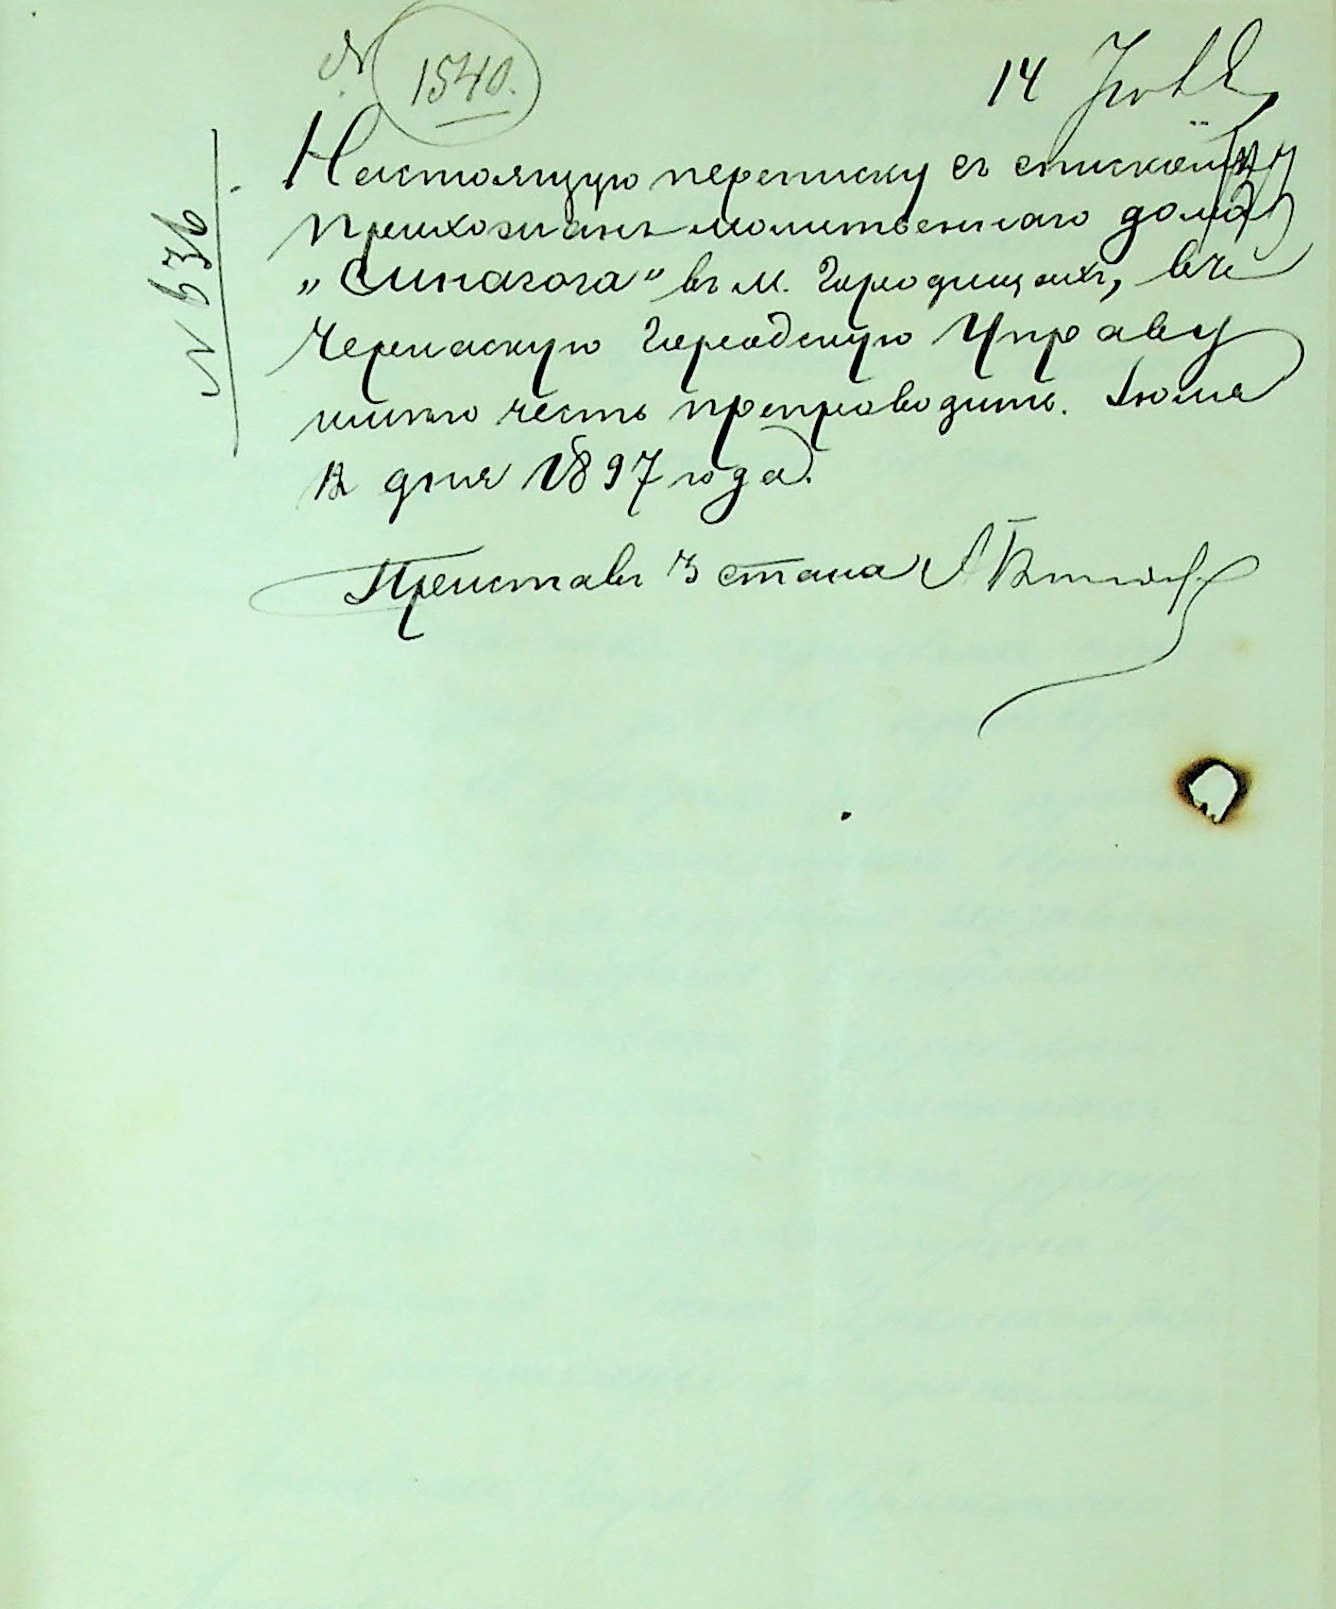 № 1540.
14
Настоящую переписку съ спискомъ
прихожанъ молитвеннаго дома
„Синагога" въ м. Городищахъ, въ
Черкаскую Городскую Управу
имѣю честь препроводить. Iюля
12 дня 1897 года.
Приставъ 3 стана
№ 636